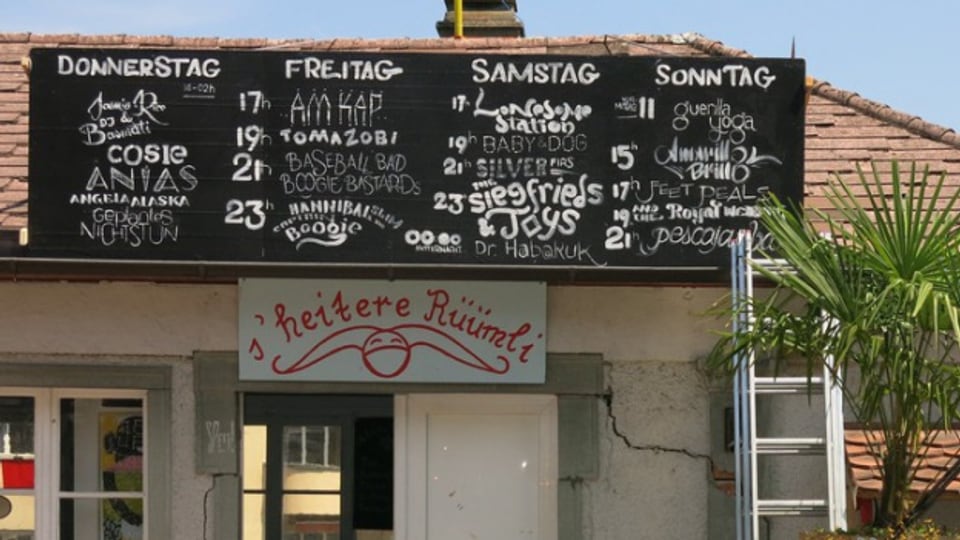 DONNERSTAG
18-02h
Jamie Ree
DJ &
Basmati
COSIE
ANIAS
ANGELA ALASKA
Geplantes
NICHSTUN
FREITAG
17h AM KAP
19h TOMAZOBI
21h BASEBALL BAD
BOOGIE BASTARDS
23h HANNIBAL SLIM
Boogie
SAMSTAG
17h Lonesome
Station
19h BABY & DOG
21h SILVER FIRS
23 THE siegfrieds
& JOYS
00:00
Dr. Habakuk
SONNTAG
11 guerilla
yoga
15h Amarillo
Brillo
17h FEET PEALS
19h AND THE Royal
21h
s'heitere Rüümli